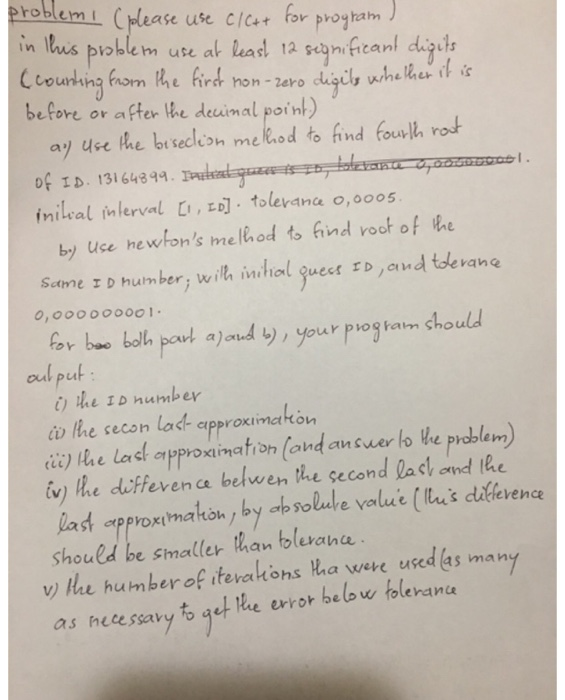 problem 1 (please use C/C++ for program)
in this problem use at least 12 significant digits
(counting from the first non-zero digits whether it is
before or after the decimal point)
a.) Use the bisection method to find fourth root
of ID. 13164899. Initial guess is ID, tolerance 0,000000001.
initial interval [1, ID]. tolerance 0,0005.
b.) Use newton's method to find root of the
same ID number, with initial guess ID, and tolerance
0,000000001.
for both part a) and b), your program should
output:
i) the ID number
ii) the secon last approximation
iii) the last approximation (and answer to the problem)
iv) the difference betwen the second last and the
last approximation, by absolute value (this difference
should be smaller than tolerance.
v) the number of iterations tha were used (as many
as necessary to get the error below tolerance